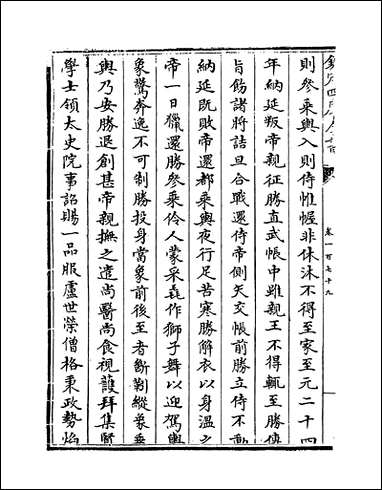 欽定四庫全書
卷一百七十九
則參乘輿入則侍帷幄非休沐不得至家至元二十四
年納延叛帝親征勝直武帳中雖親王不得輒至勝傳
旨飭諸將詰旦合戰還侍帝側矢交帳前勝立侍不動
納延既敗帝還都乘輿夜行足苦寒勝解衣以身温之
帝一日獵還勝參乘伶人蒙采毳作獅子舞以迎駕輿
象驚奔逸不可制勝投身當象前後至者斷靷縱象乗
輿乃安勝退創甚帝親撫之遣尚醫尚食視護拜集賢
學士領太史院事詔賜一品服盧世榮僧格秉政勢焰